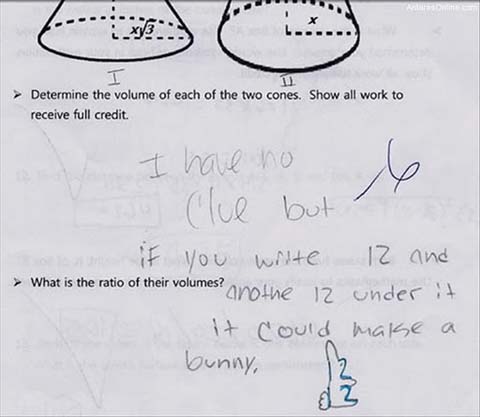 AntaresOnline.com
x√3
x
I
II
➢ Determine the volume of each of the two cones. Show all work to
receive full credit.
I have no
Clue but
-6
if you write 12 and
➢ What is the ratio of their volumes?
anothe 12 under it
it could make a
bunny.
12
12